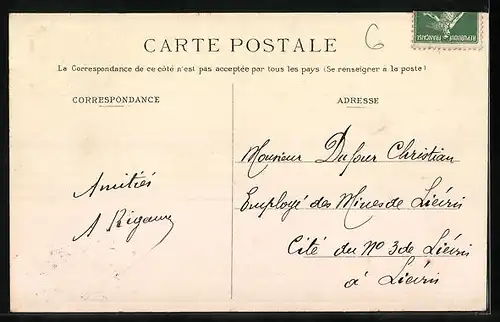 CARTE POSTALE
6
REPUBLIQUE FRANÇAISE
La Correspondance de ce côté n'est pas acceptée par tous les pays (Se renseigner à la poste)
CORRESPONDANCE
ADRESSE
Amitiés
A Rigaux
Monsieur Dufour Christian
Employé des Mines de Liévin
Cité du No 3 de Liévin
à Liévin